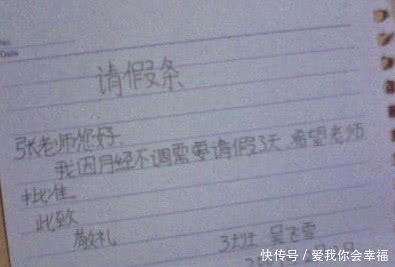 请假条
张老师您好
我因月经不调需要请假3天 希望老师
批准
此致
敬礼
3班 吴飞雪
快传号 / 爱我你会幸福